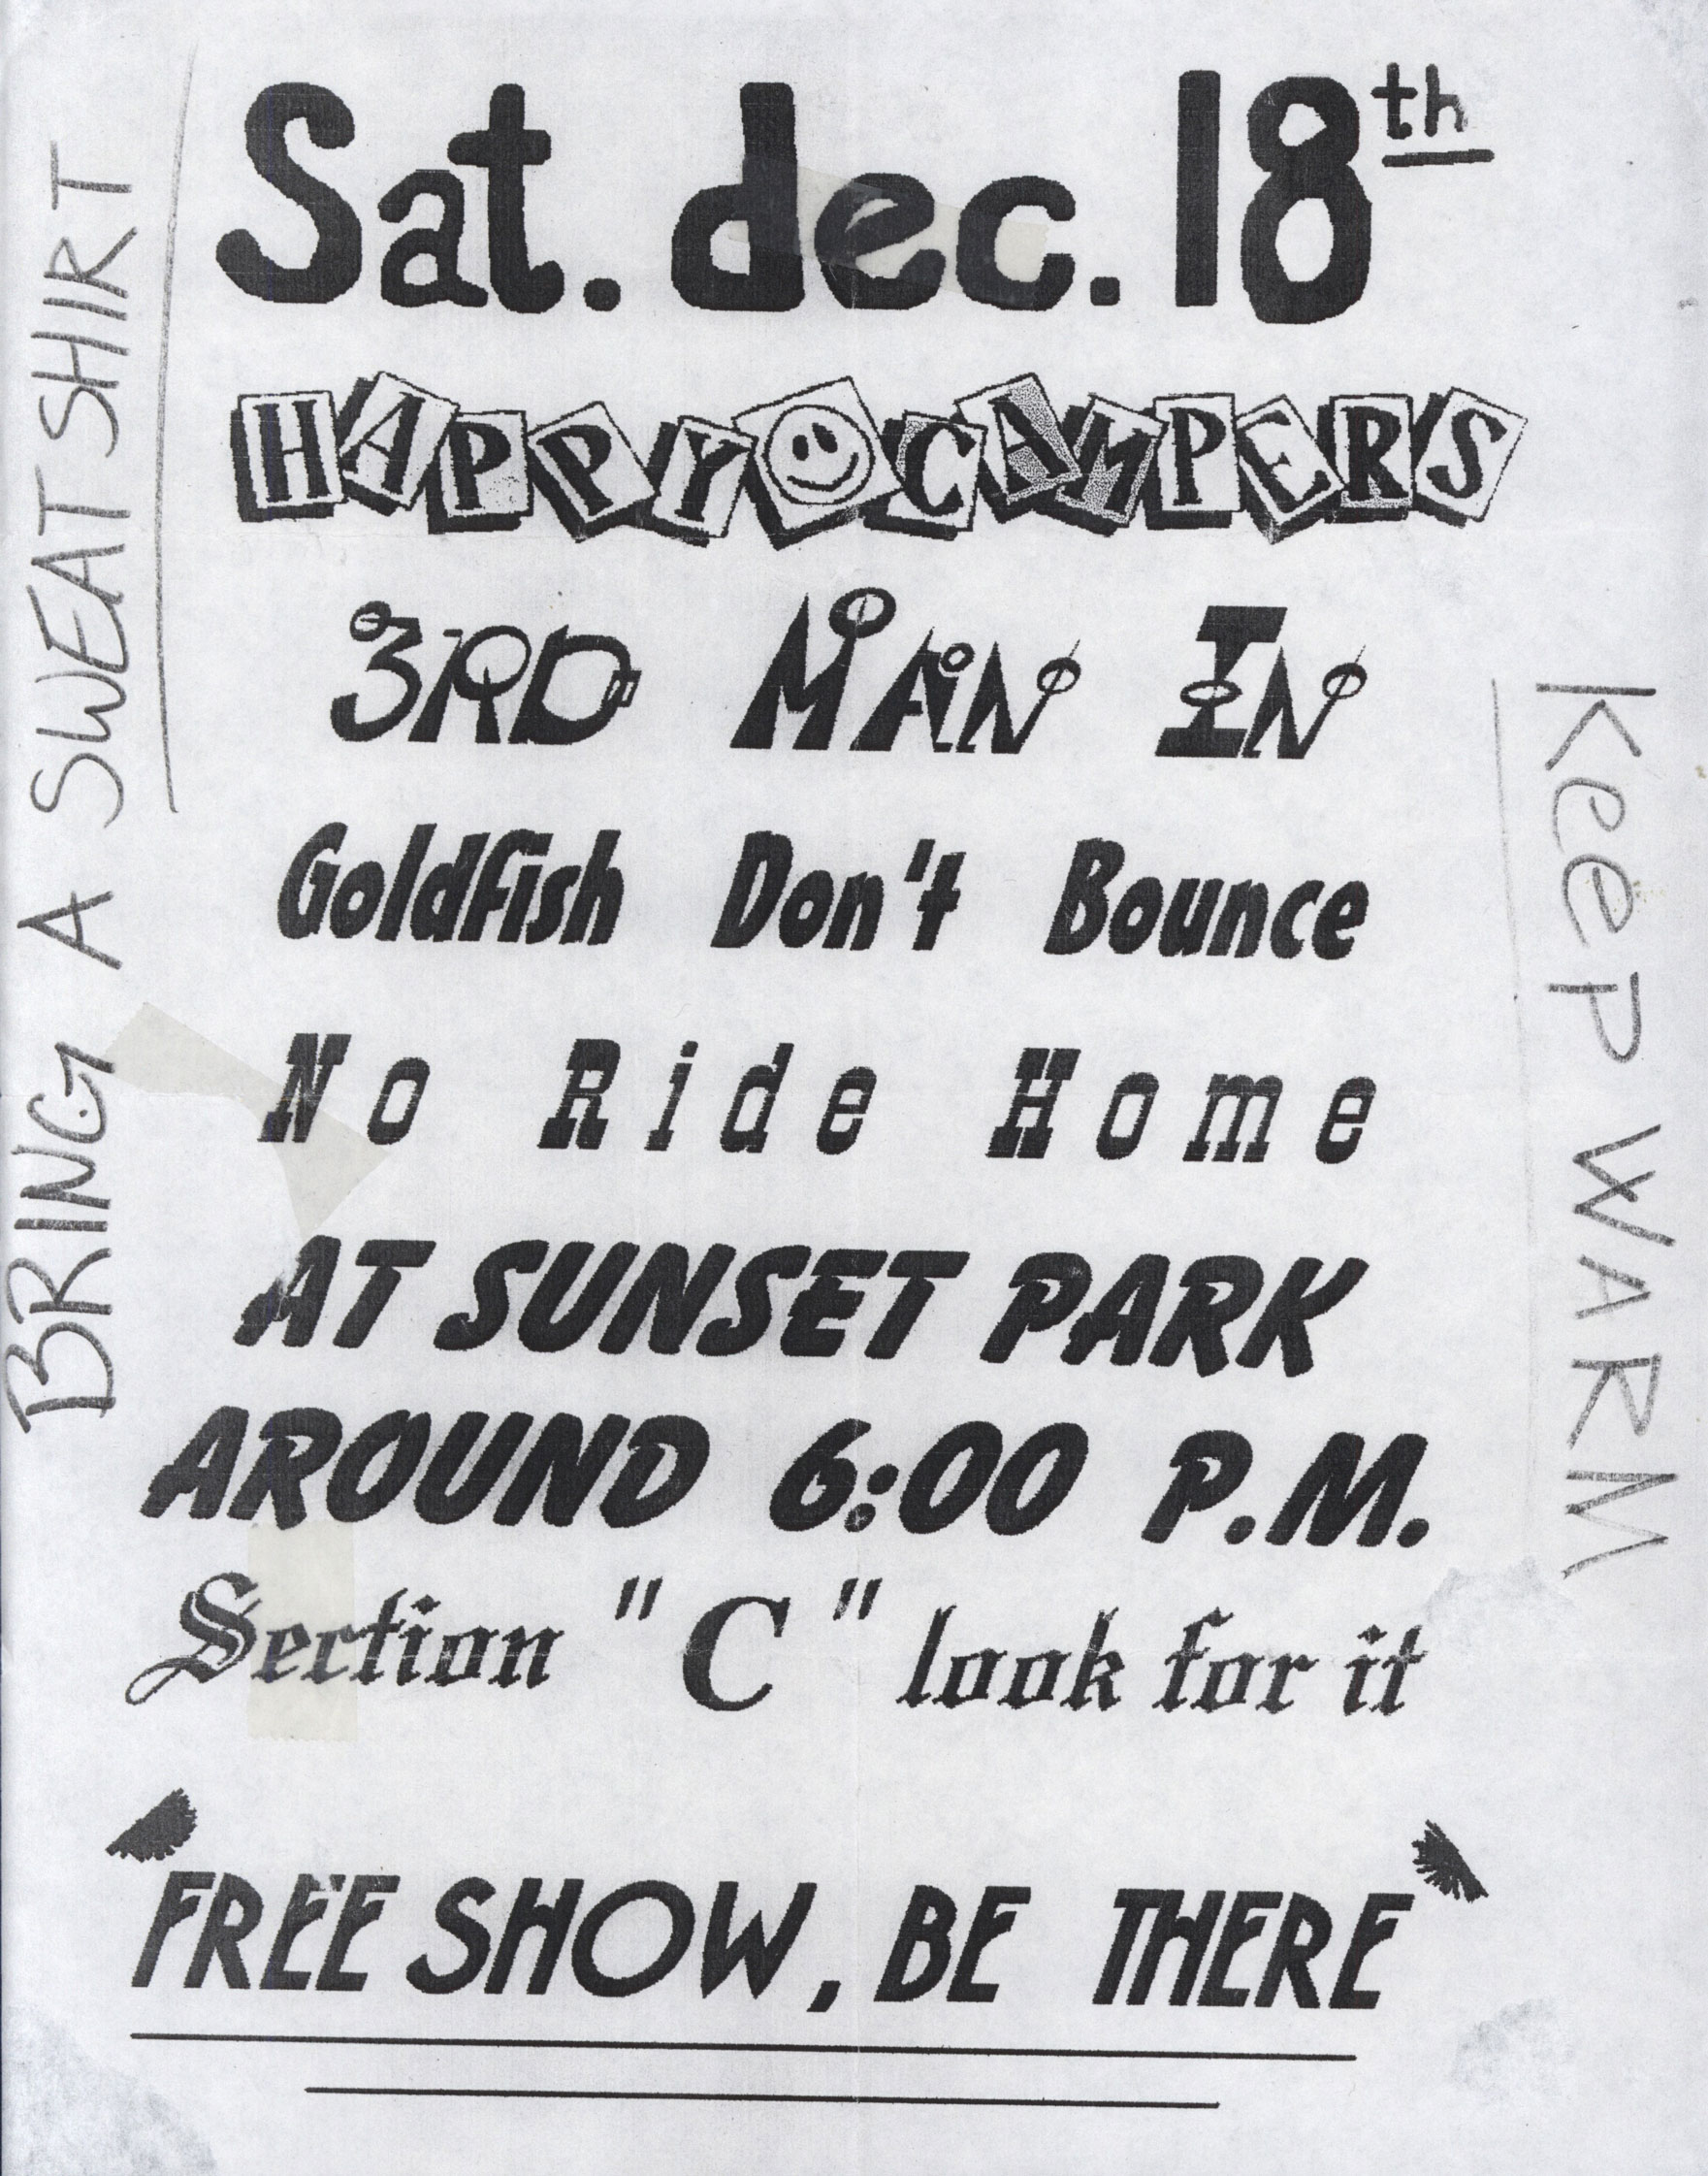 Sat. dec. 18th
HAPPY CAMPERS
3RD MAN IN
Goldfish Don't Bounce
No Ride Home
AT SUNSET PARK
AROUND 6:00 P.M.
Section "C" look for it
"FREE SHOW, BE THERE"
BRING A SWEATSHIRT
KeeP WARM